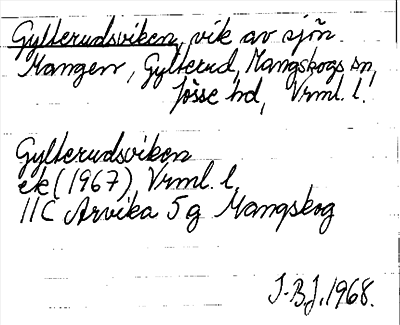 Gylterudsviken, vik av sjön
Mangen, Gylterud, Mangskogs sn,
Jösse hd, Vrml. l.
Gylterudsviken
ek (1967), Vrml. l,
11C Arvika 5g Mangskog
I-B.J. 1968.